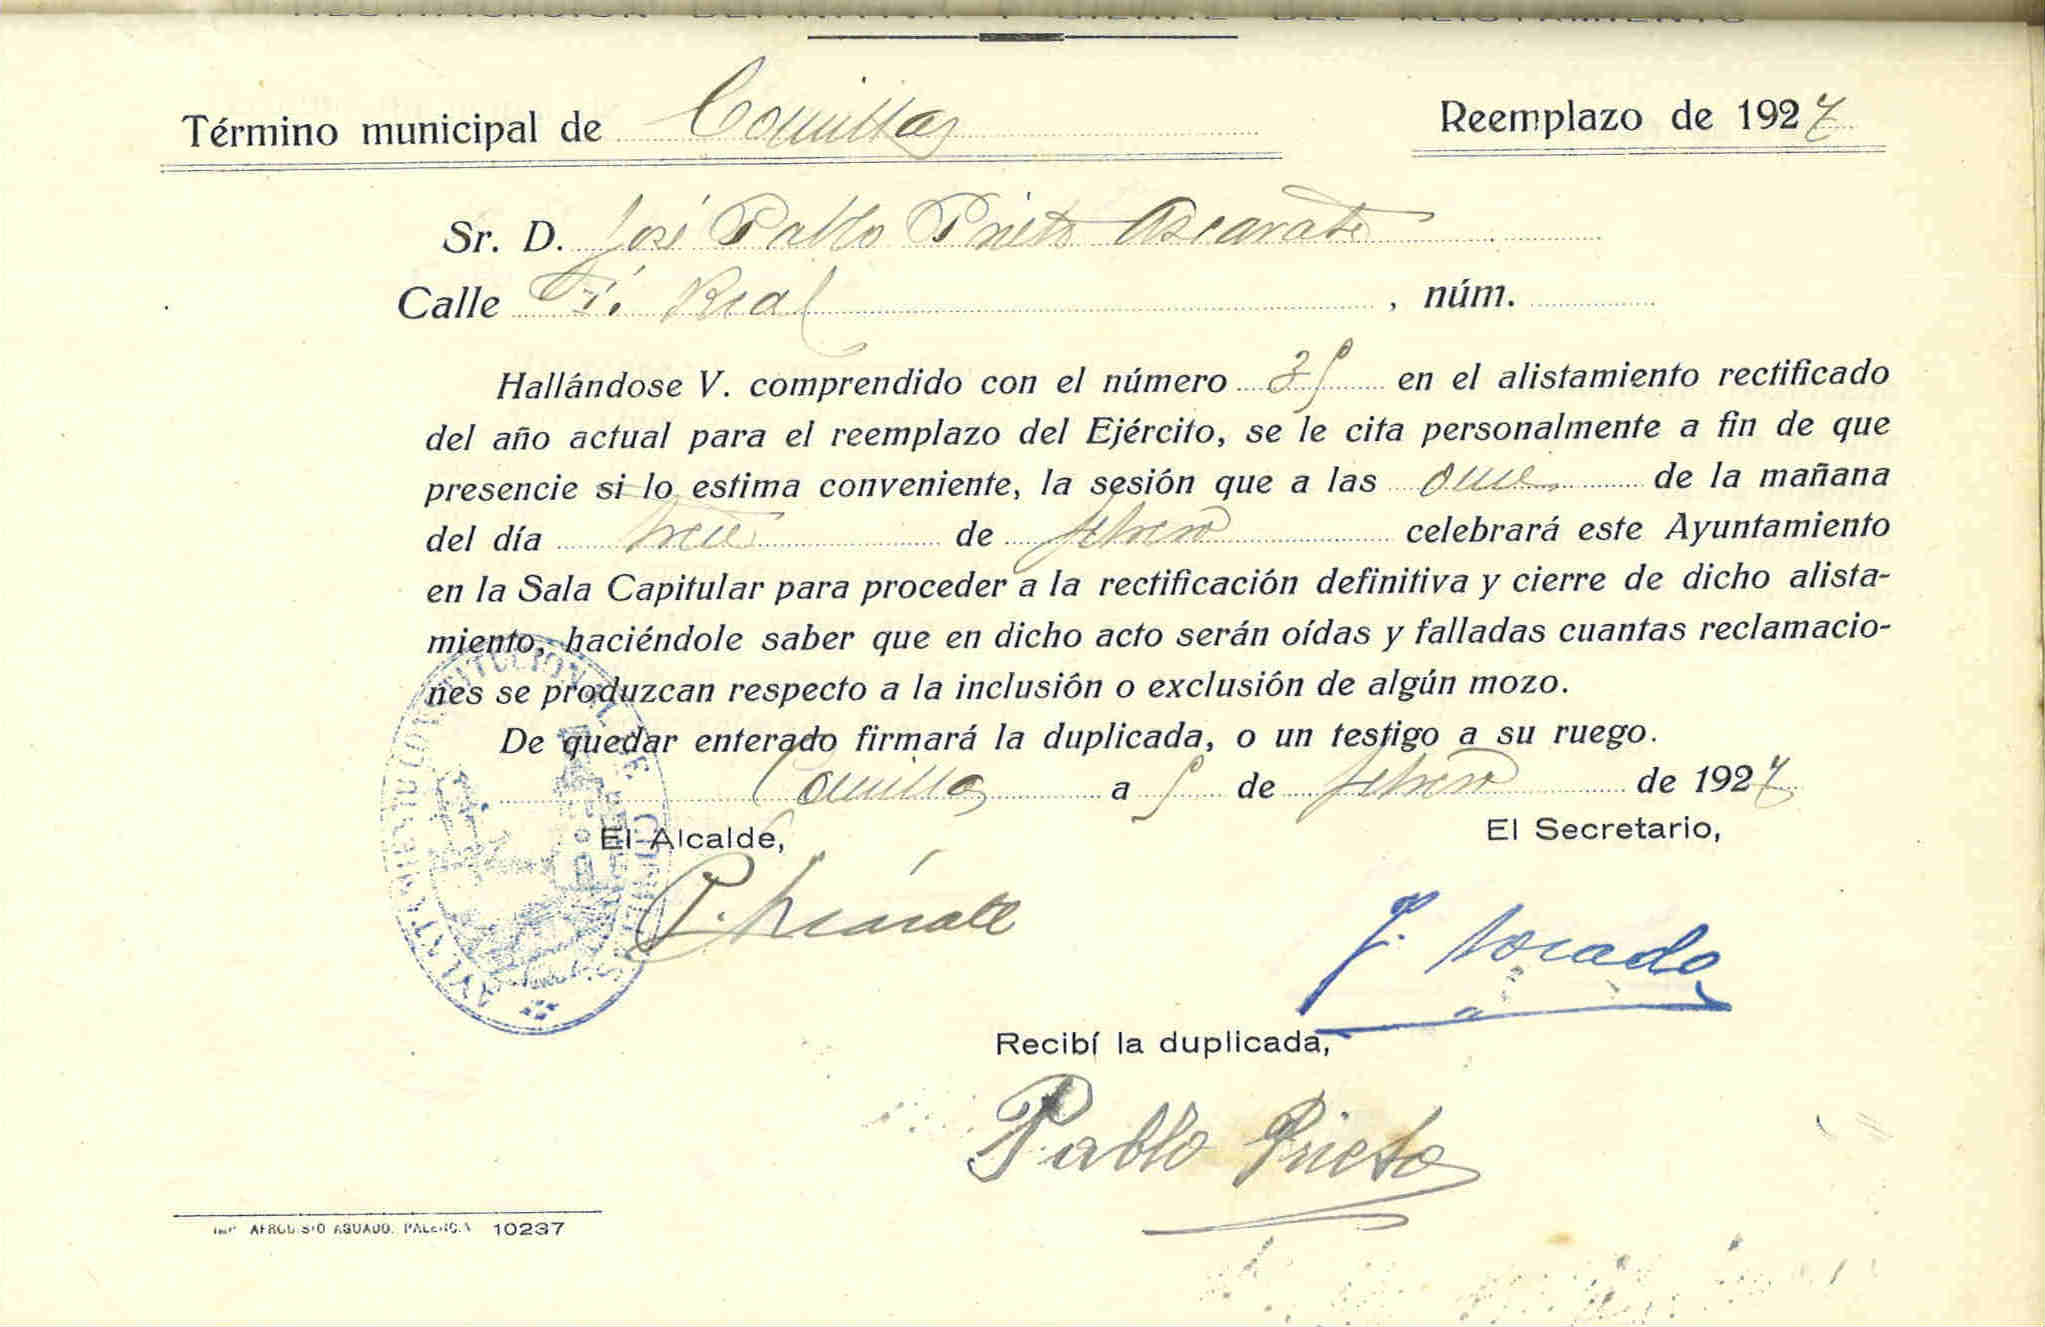 RECTIFICACIÓN DEFINITIVA Y CIERRE DEL ALISTAMIENTO
Término municipal de Comillas Reemplazo de 1927
Sr. D. José Pablo Prieto Azcarate
Calle F. Real , núm.
Hallándose V. comprendido con el número 35 en el alistamiento rectificado
del año actual para el reemplazo del Ejército, se le cita personalmente a fin de que
presencie si lo estima conveniente, la sesión que a las once de la mañana
del día trece de febrero celebrará este Ayuntamiento
en la Sala Capitular para proceder a la rectificación definitiva y cierre de dicho alista-
miento, haciéndole saber que en dicho acto serán oídas y falladas cuantas reclamacio-
nes se produzcan respecto a la inclusión o exclusión de algún mozo.
De quedar enterado firmará la duplicada, o un testigo a su ruego.
Comillas a 5 de febrero de 1927
El Alcalde,
El Secretario,
AYUNTAMIENTO CONSTITUCIONAL DE COMILLAS
Recibí la duplicada,
Pablo Prieto
IMP. AFRODISIO AGUADO. PALENCIA 10237